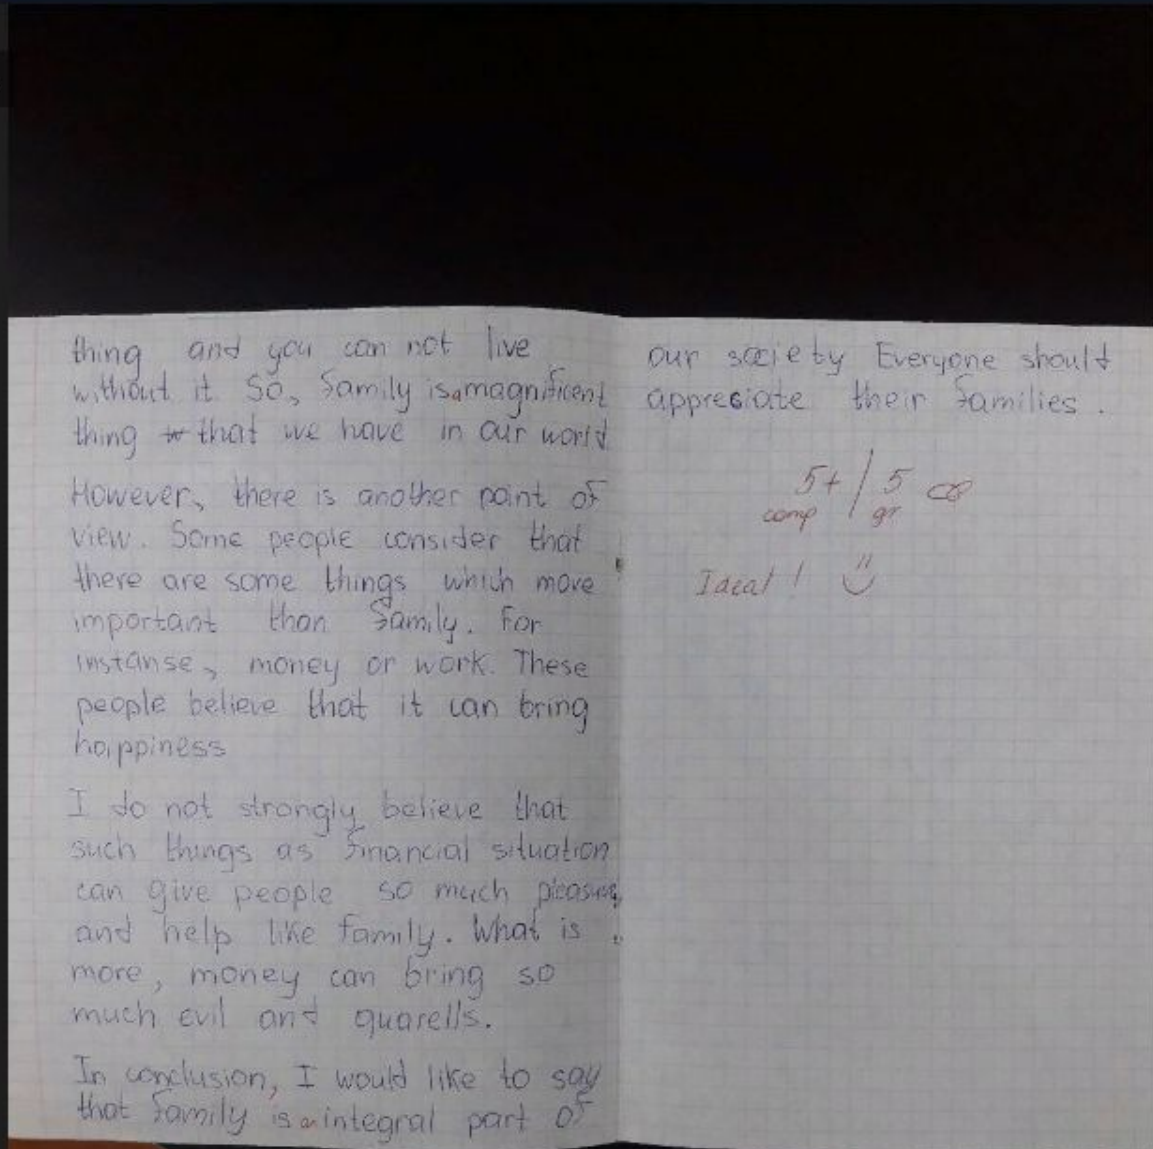 thing and you can not live
without it. So, family is a magnificent
thing that we have in our world.
However, there is another point of
view. Some people consider that
there are some things which more
important than family. For
instanse, money or work. These
people believe that it can bring
happiness
I do not strongly believe that
such things as financial situation
can give people so much pleasure
and help like family. What is
more, money can bring so
much evil and quarells.
In conclusion, I would like to say
that family is an integral part of
our society Everyone should
appreciate their families.
5+ / 5
comp gr
Ideal!